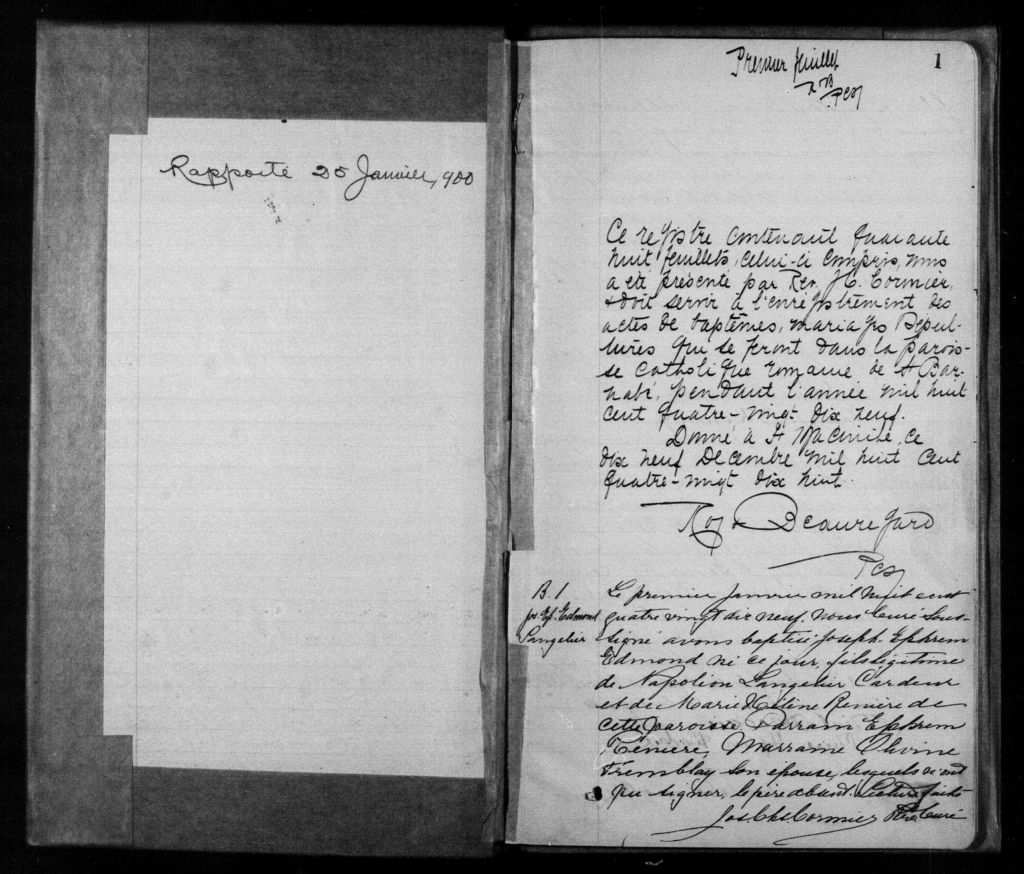 Rapporté 25 Janvier, 900
1
Premier feuillet
R & B
PCS
Ce registre contenant quarante
huit feuillets, celui-ci compris, nous
a été présenté par Rev. J C. Cormier,
& doit servir à l'enregistrement des
actes de baptêmes, mariages & sépul-
tures qui se feront dans la parois-
se catholique romaine de St Bar-
nabé, pendant l'année mil huit
cent quatre-vingt dix neuf.
Donné à St Hyacinthe, ce
dix neuf Decembre mil huit cent
quatre-vingt dix huit.
Roy & Beauregard
PCS
B. 1
Jos. Ep. Edmond
Langelier
Le premier janvier mil huit cent
quatre vingt dix neuf, Nous Curé Sous-
signé avons baptisé Joseph Ephrem
Edmond né ce jour, fils légitime
de Napoléon Langelier Cardeur
et de Marie Hélène Renière de
cette paroisse Parrain Ephrem
Renière, Marraine Olivine
Tremblay son épouse, lesquels n'ont
pu signer, le père absent. Lecture faite
Jos. Chs. Cormier Ptre Curé